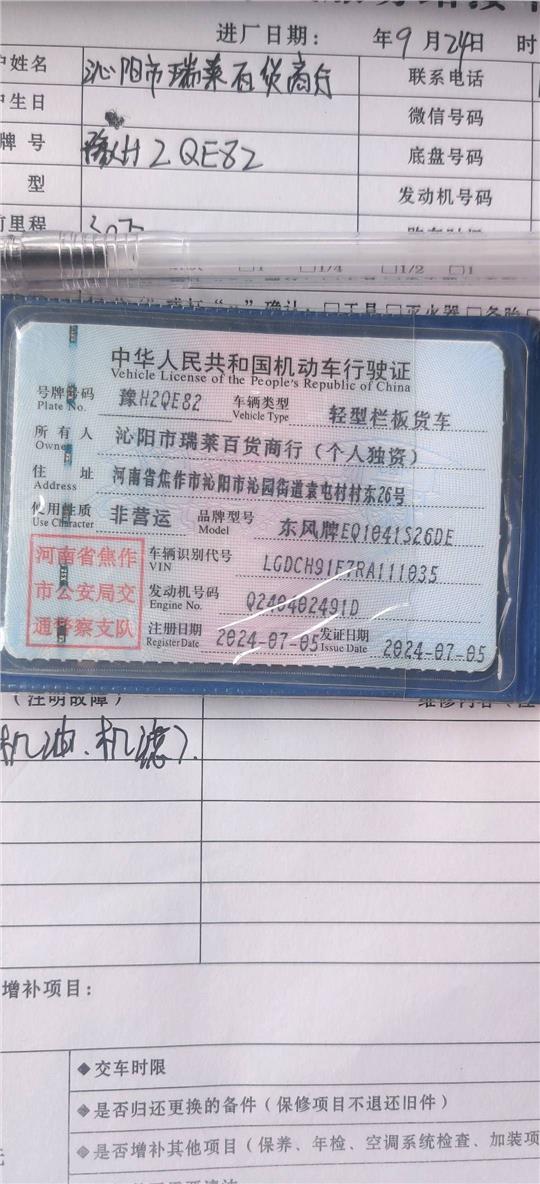 进厂日期： 年9月24日 时
户姓名 沁阳市瑞莱百货商行 联系电话
中生日 微信号码
牌 号 豫H2QE82 底盘号码
型 发动机号码
前里程
□1 □1/4 □1/2 □1
确认：□工具 □灭火器 □备胎
中华人民共和国机动车行驶证
Vehicle License of the People's Republic of China
号牌号码 豫H2QE82 车辆类型 轻型栏板货车
Plate No. Vehicle Type
所有人 沁阳市瑞莱百货商行（个人独资）
Owner
住 址 河南省焦作市沁阳市沁园街道袁屯村村东26号
Address
使用性质 非营运 品牌型号 东风牌EQ1041S26DE
Use Character Model
河南省焦作
市公安局交
通警察支队
车辆识别代号 LGDCH91E7RA111035
VIN
发动机号码 Q240402491D
Engine No.
注册日期 2024-07-05 发证日期 2024-07-05
Register Date Issue Date
（注明故障）
机油、机滤）.
增补项目：
◆交车时限
◆是否归还更换的备件（保修项目不退还旧件）
◆是否增补其他项目（保养、年检、空调系统检查、加装项